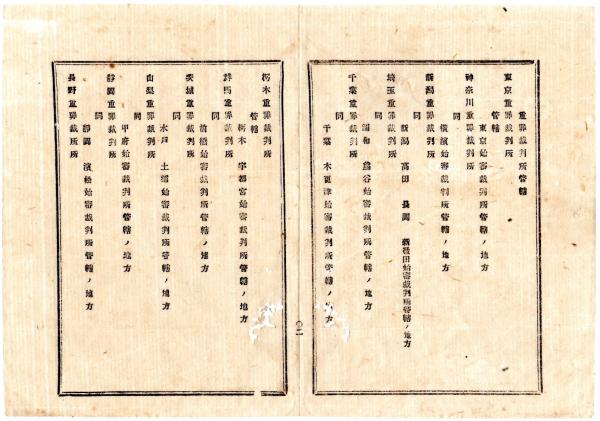 重罪裁判所管轄
東京重罪裁判所
管轄
東京始審裁判所管轄ノ地方
神奈川重罪裁判所
同
横濱始審裁判所管轄ノ地方
新潟重罪裁判所
同
新潟 高田 長岡 新發田始審裁判所管轄ノ地方
埼玉重罪裁判所
同
浦和 熊谷始審裁判所管轄ノ地方
千葉重罪裁判所
同
千葉 木更津始審裁判所管轄ノ地方
〇二
栃木重罪裁判所
管轄
栃木 宇都宮始審裁判所管轄ノ地方
群馬重罪裁判所
同
前橋始審裁判所管轄ノ地方
茨城重罪裁判所
同
水戸 土浦始審裁判所管轄ノ地方
山梨重罪裁判所
同
甲府始審裁判所管轄ノ地方
靜岡重罪裁判所
同
靜岡 濱松始審裁判所管轄ノ地方
長野重罪裁判所